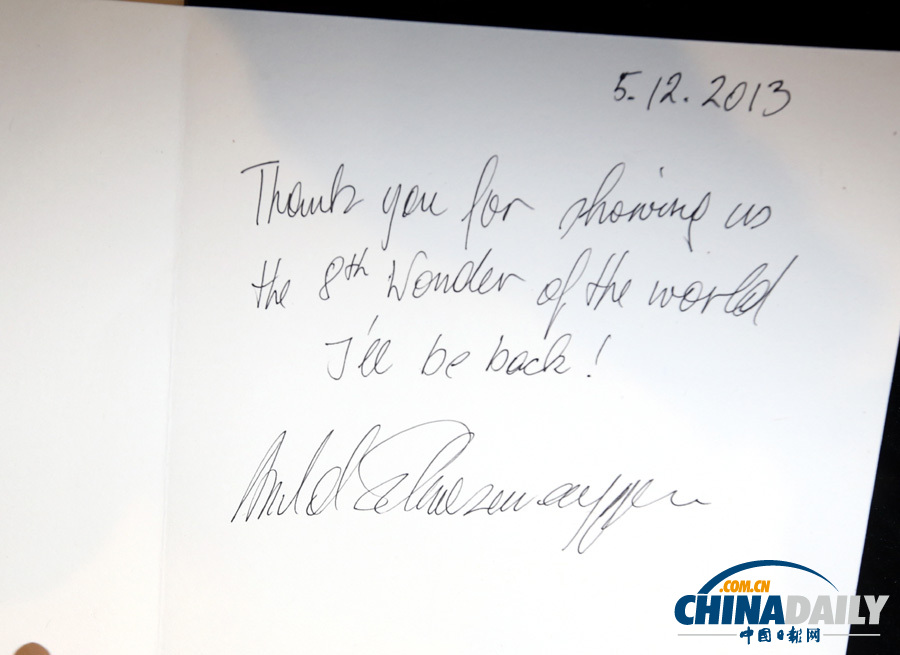 5.12.2013
Thank you for showing us
the 8th Wonder of the world
I'll be back!
Arnold Schwarzenegger
.COM.CN
CHINADAILY
中国日报网